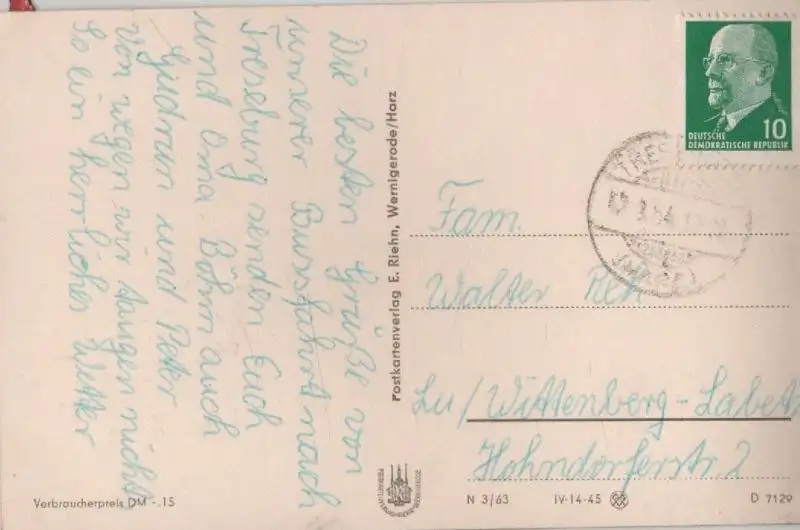 Die besten Grüße von
unserer Busfahrt nach
Treseburg senden Euch
und Oma. Böhm auch
Gudrun und Peter
Von wegen wir taugen nicht
So ein herrliches Wetter
Postkartenverlag E. Riehn, Wernigerode/Harz
10
DEUTSCHE
DEMOKRATISCHE REPUBLIK
Fam.
Walter
Lu/Wittenberg-Labetz
Hohndorferstr. 2
Verbraucherpreis DM -.15
N 3/63 IV-14-45 D 7129